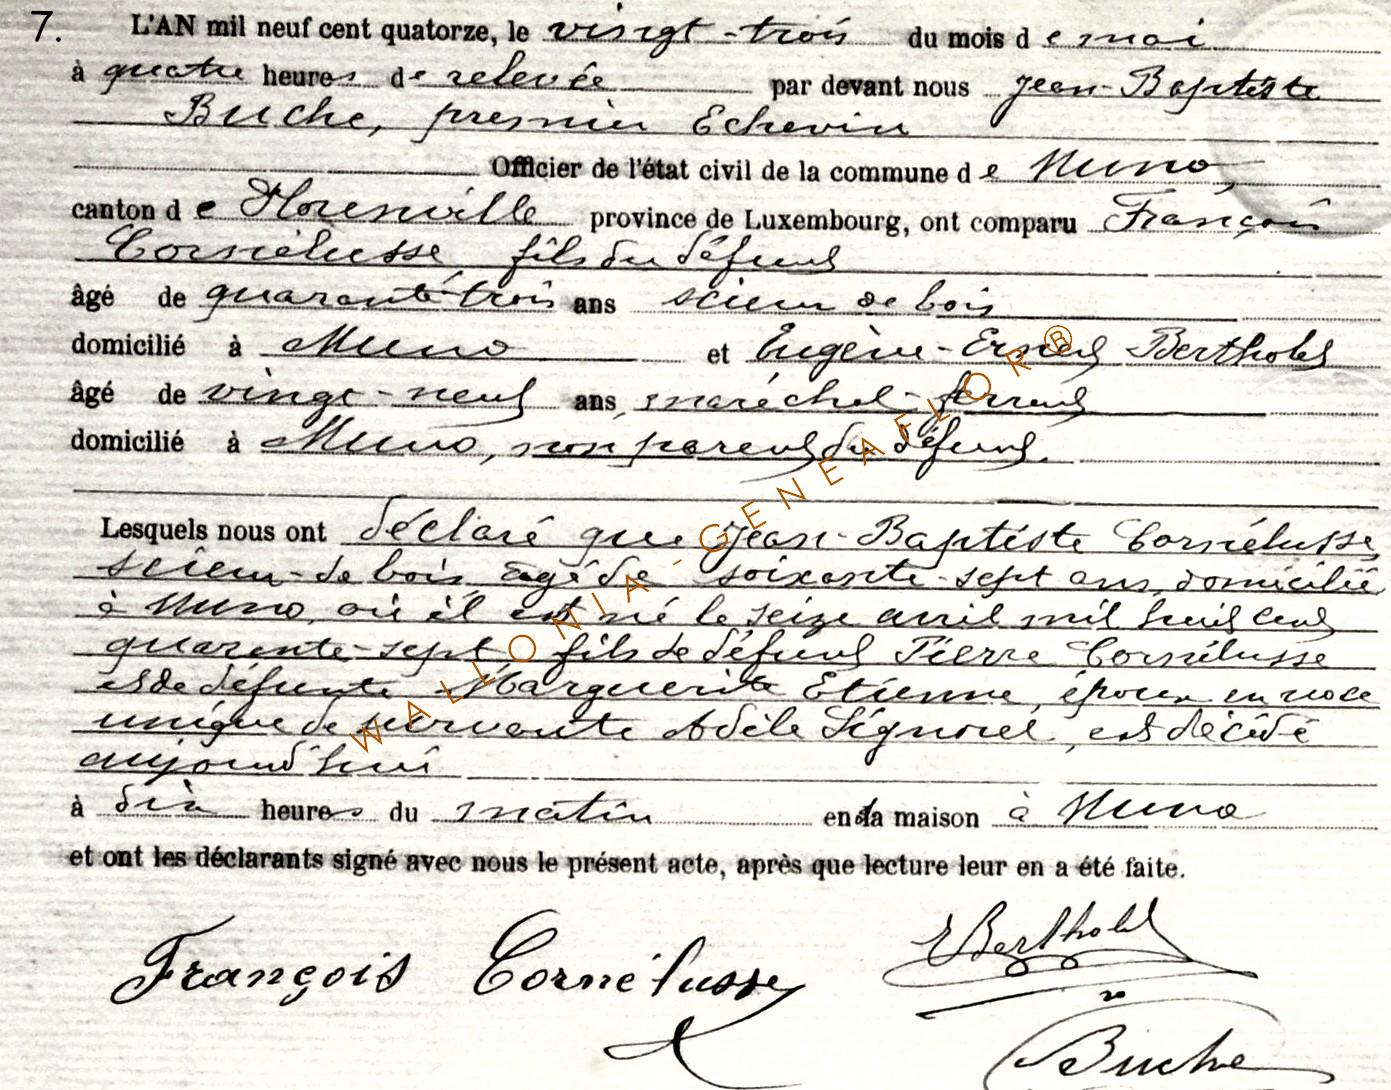 7. L'AN mil neuf cent quatorze, le vingt-trois du mois de mai
à quatre heures de relevée par devant nous Jean-Baptiste
Buche, premier Echevin
Officier de l'état civil de la commune de Muno,
canton de Florenville province de Luxembourg, ont comparu François
Cornélusse fils du défunt
âgé de quarante-trois ans scieur de bois
domicilié à Muno et Eugène-Ernest Berthold
âgé de vingt-neuf ans, maréchal-ferrant
domicilié à Muno, non parent du défunt.
Lesquels nous ont déclaré que Jean-Baptiste Cornélusse,
scieur-de bois, âgé de soixante-sept ans, domicilié
à Muno, où il est né le seize avril mil huit cent
quarante-sept fils de défunt Pierre Cornélusse
et de défunte Marguerite Etienne, époux en noce
unique de survivante Adèle Signorel, est décédé
aujourd'hui
à dix heures du matin en sa maison à Muno
et ont les déclarants signé avec nous le présent acte, après que lecture leur en a été faite.
François Cornélusse
E Berthold
Buche
WALLONIA-GENEAFLOR®